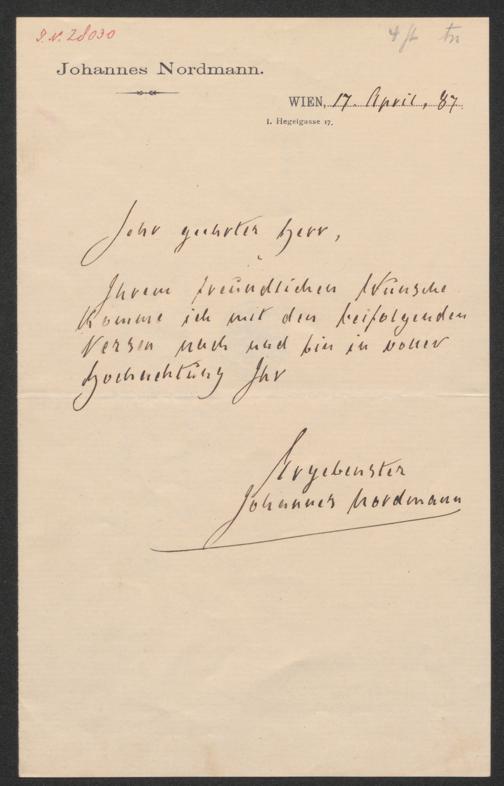 J.N. 28030
Johannes Nordmann.
WIEN, 17 April, 87
I. Hegelgasse 17.
Sehr geehrter Herr,
Ihrem freundlichen Wunsche
komme ich mit den beifolgenden
Versen nach und bin in voller
Hochachtung Ihr
Ergebenster
Johannes Nordmann